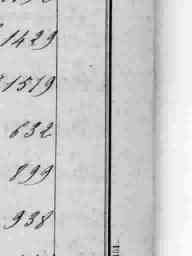 1429
1519
632
899
938